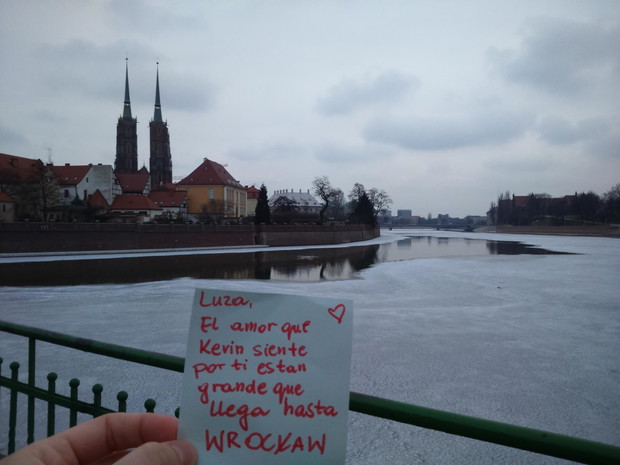 Luza,
El amor que
Kevin siente
por ti estan
grande que
llega hasta
WROCŁAW